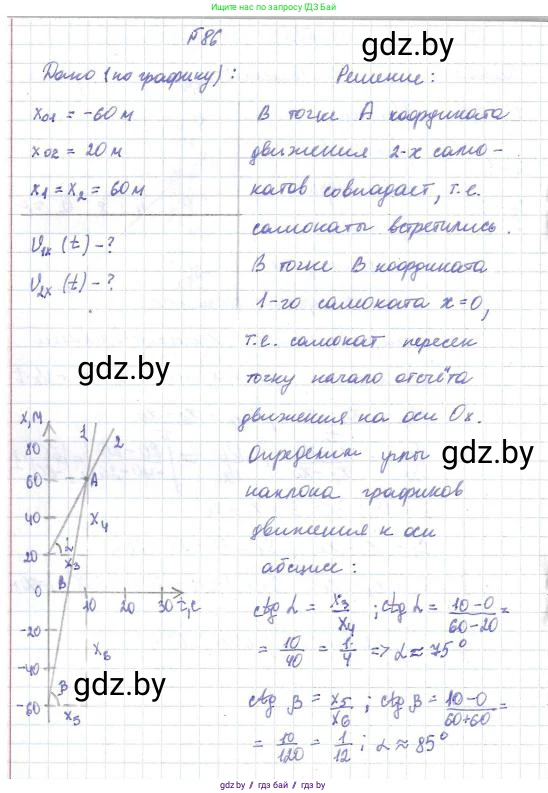 Ищите ответ по запросу ГДЗ БАЙ
№86
gdz.by
Дано (по графику): Решение:
x01 = -60 м
x02 = 20 м
x1 = x2 = 60 м
V1x (t) - ?
V2x (t) - ?
В точке А координата
движения 2-х само-
катов совпадает, т.е.
самокаты встретились.
В точке В координата
1-го самоката x=0,
т.е. самокат пересек
gdz.by
точку начало отсчёта
движения на оси Ox.
gdz.by
Определим углы
наклона графиков
движения к оси
абсцисс:
x, м
1
2
80
60
A
40
x4
20
α
x3
B
0
10 20 30 t, c
-20
-40
x6
B
-60
x5
ctg α = x3/x4 ; ctg α = 10-0/60-20 =
= 10/40 = 1/4 => α ≈ 75°
gdz.by
ctg β = x5/x6 ; ctg β = 10-0/60+60 =
= 10/120 = 1/12 ; α ≈ 85°
gdz.by / гдз бай / гдз by